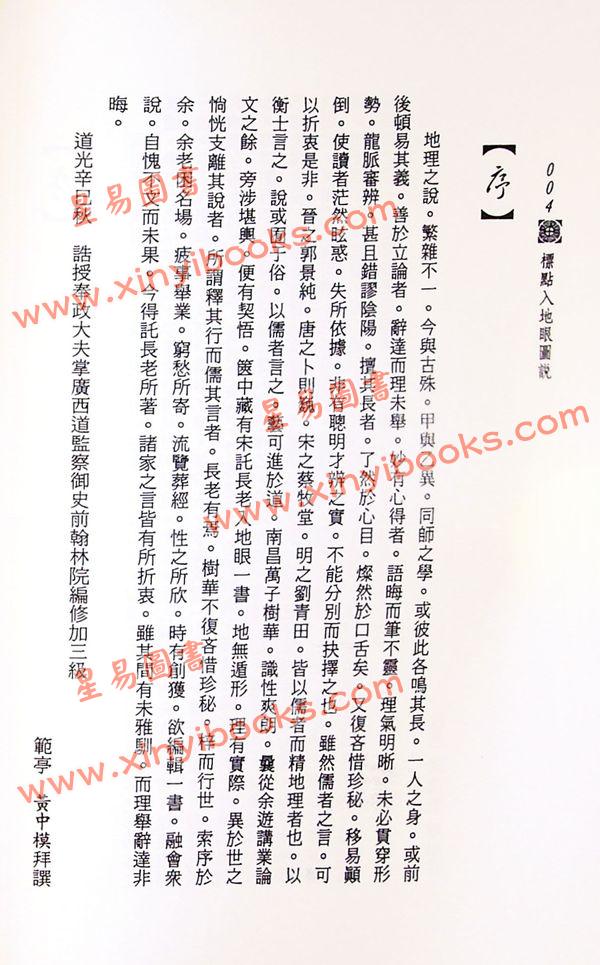 004 標點入地眼圖説
【序】
地理之說。繁雜不一。今與古殊。甲與乙異。同師之學。或彼此各鳴其長。一人之身。或前
後頓易其義。善於立論者。辭達而理未舉。妙有心得者。語晦而筆不靈。理氣明晰。未必貫穿形
勢。龍脈審辨。甚且錯謬陰陽。擅其長者。了然於心目。燦然於口舌矣。又復吝惜珍秘。移易顛
倒。使讀者茫然眩惑。失所依據。非有聰明才辨之實。不能分別而抉擇之也。雖然儒者之言。可
以折衷是非。晉之郭景純。唐之卜則巍。宋之蔡牧堂。明之劉青田。皆以儒者而精地理者也。以
術士言之。說或囿于俗。以儒者言之。藝可進於道。南昌萬子樹華。識性爽朗。曩從余遊講業論
文之餘。旁涉堪輿。便有契悟。篋中藏有宋託長老入地眼一書。地無遁形。理有實際。異於世之
惝恍支離其說者。所謂釋其行而儒其言者。長老有焉。樹華不復吝惜珍秘。梓而行世。索序於
余。余老困名場。疲事舉業。窮愁所寄。流覽葬經。性之所欣。時有創獲。欲編輯一書。融會衆
說。自愧不文而未果。今得託長老所著。諸家之言皆有所折衷。雖其間有未雅馴。而理舉辭達非
晦。
道光辛巳秋 誥授奉政大夫掌廣西道監察御史前翰林院編修加三級
範亭 黃中模拜譔
星易圖書
www.xinyibooks.com
星易圖書
www.xinyibooks.com
星易圖書
www.xinyibooks.com